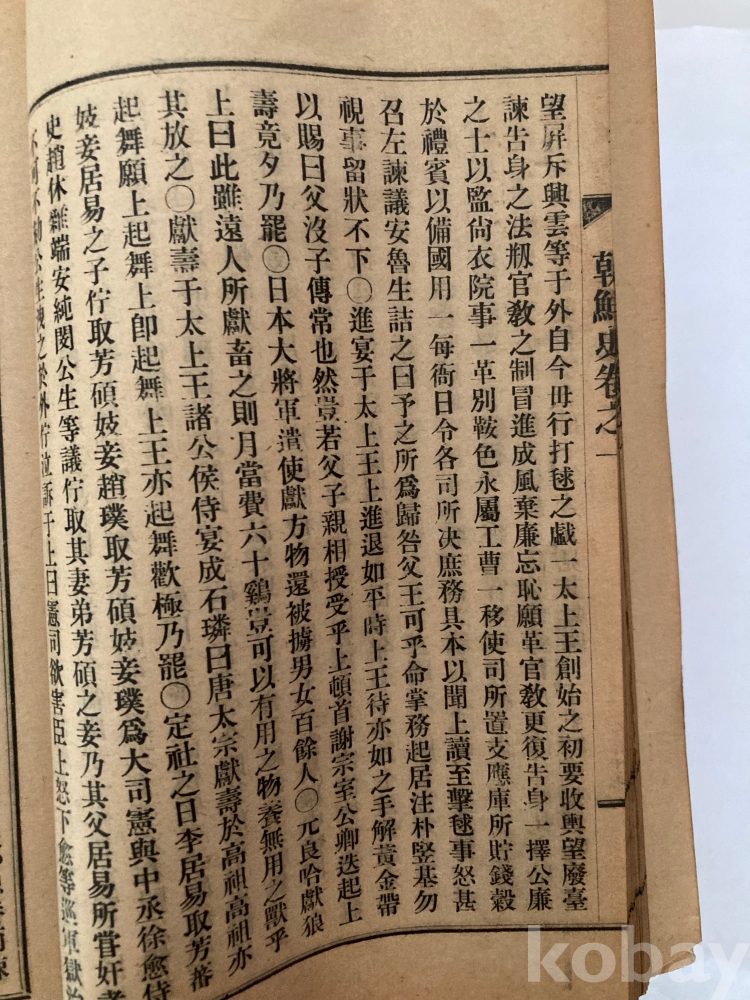 朝鮮史卷之一
望屛斥興雲等于外自今毋行打毬之戱一太上王創始之初要收輿望廢臺
諫告身之法剏官敎之制冒進成風棄廉忘恥願革官敎更復告身一擇公廉
之士以監尙衣院事一革別鞍色永屬工曹一移使司所置支應庫所貯錢穀
於禮賓以備國用一每衙日令各司所决庶務具本以聞上讀至擊毬事怒甚
召左諫議安魯生詰之曰予之所爲歸咎父王可乎命掌務起居注朴竪基勿
視事留狀不下〇進宴于太上王上進退如平時上王待亦如之手解黃金帶
以賜曰父沒子傳常也然豈若父子親相授受乎上頓首謝宗室公卿迭起上
壽竟夕乃罷〇日本大將軍遣使獻方物還被擄男女百餘人〇兀良哈獻狼
上曰此雖遠人所獻畜之則月當費六十鷄豈可以有用之物養無用之獸乎
其放之〇獻壽于太上王諸公侯侍宴成石璘曰唐太宗獻壽於高祖高祖亦
起舞願上起舞上卽起舞上王亦起舞歡極乃罷〇定社之日李居易取芳蕃
妓妾居易之子佇取芳碩妓妾趙璞取芳碩妓妾璞爲大司憲與中丞徐愈侍
史趙休雜端安純閔公生等議佇取其妻弟芳碩之妾乃其父居易所嘗奸者
公生洩之於外佇泣訴于上曰憲司欲害臣上怒下愈等巡軍獄
kobay